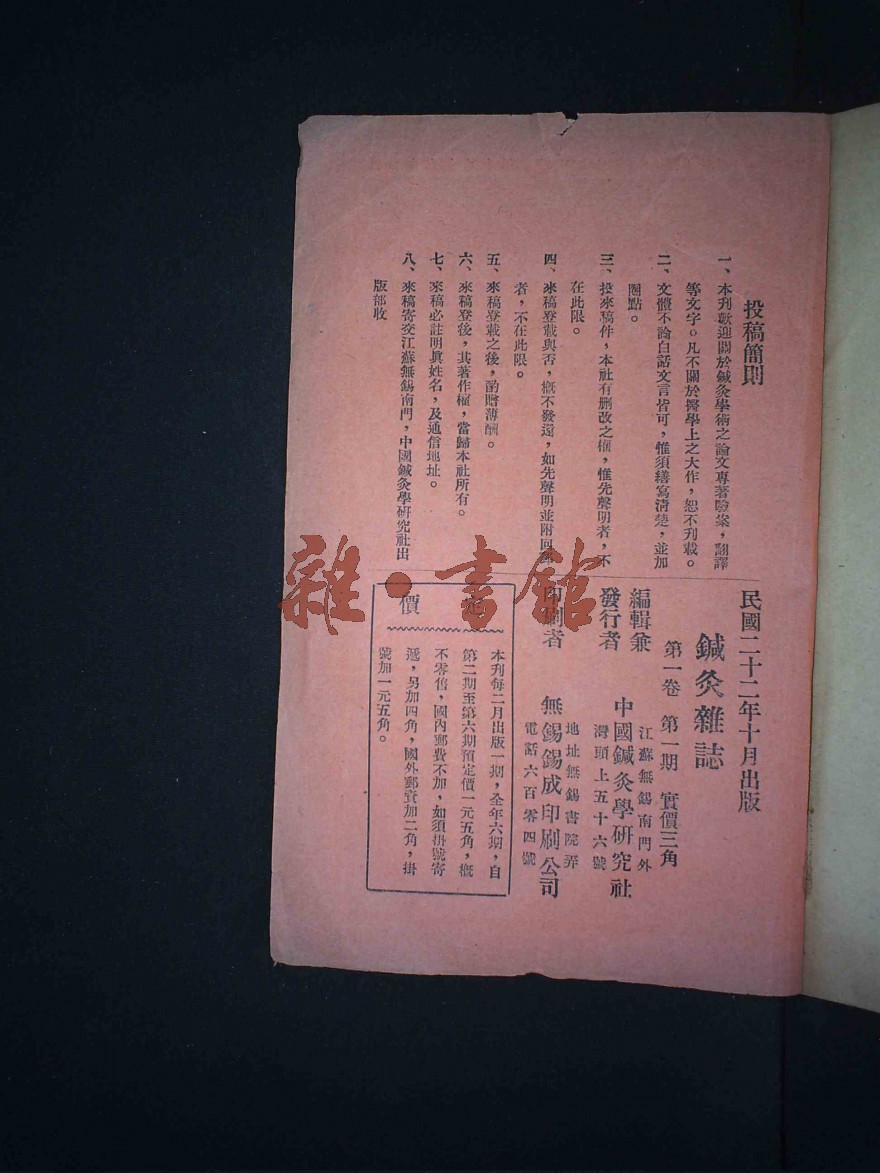 投稿簡則
一、本刊歡迎關於鍼灸學術之論文專著驗案，翻譯
等文字。凡不關於醫學上之大作，恕不刊載。
二、文體不論白話文言皆可，惟須繕寫清楚，並加
圈點。
三、投來稿件，本社有刪改之權，惟先聲明者，不
在此限。
四、來稿登載與否，概不發還，如先聲明並附回
者，不在此限。
五、來稿登載之後，酌贈薄酬。
六、來稿登後，其著作權，當歸本社所有。
七、來稿必註明眞姓名，及通信地址。
八、來稿寄交江蘇無錫南門，中國鍼灸學研究社出
版部收
民國二十二年十月出版
鍼灸雜誌
第一卷 第一期 實價三角
編輯兼
發行者
江蘇無錫南門外
中國鍼灸學研究社
灣頭上五十六號
印刷者
地址無錫書院弄
無錫錫成印刷公司
電話六百零四號
價
本刊每二月出版一期，全年六期，自
第二期至第六期預定價一元五角，概
不零售，國內郵費不加，如須掛號寄
遞，另加四角，國外郵資加二角，掛
號加一元五角。
雜·書館